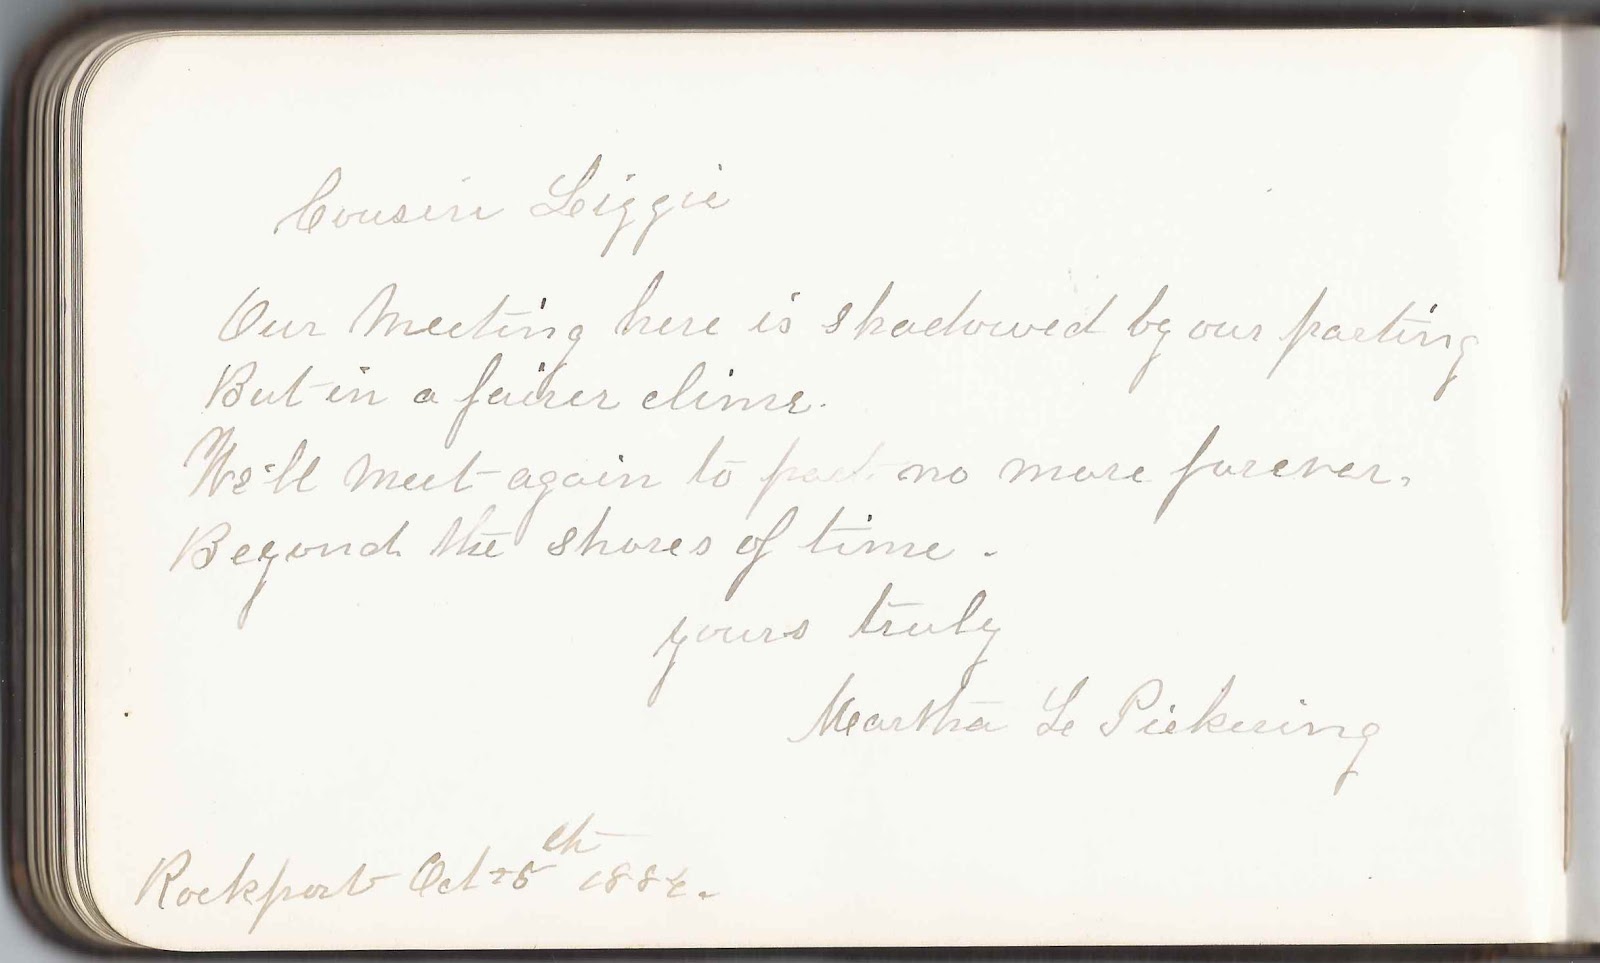 Cousin Lizzie
Our Meeting here is shadowed by our parting
But in a fairer clime.
We'll Meet again to part no more forever.
Beyond the shores of time.
yours truly
Martha L Pickering
Rockport Oct 25th 1884.